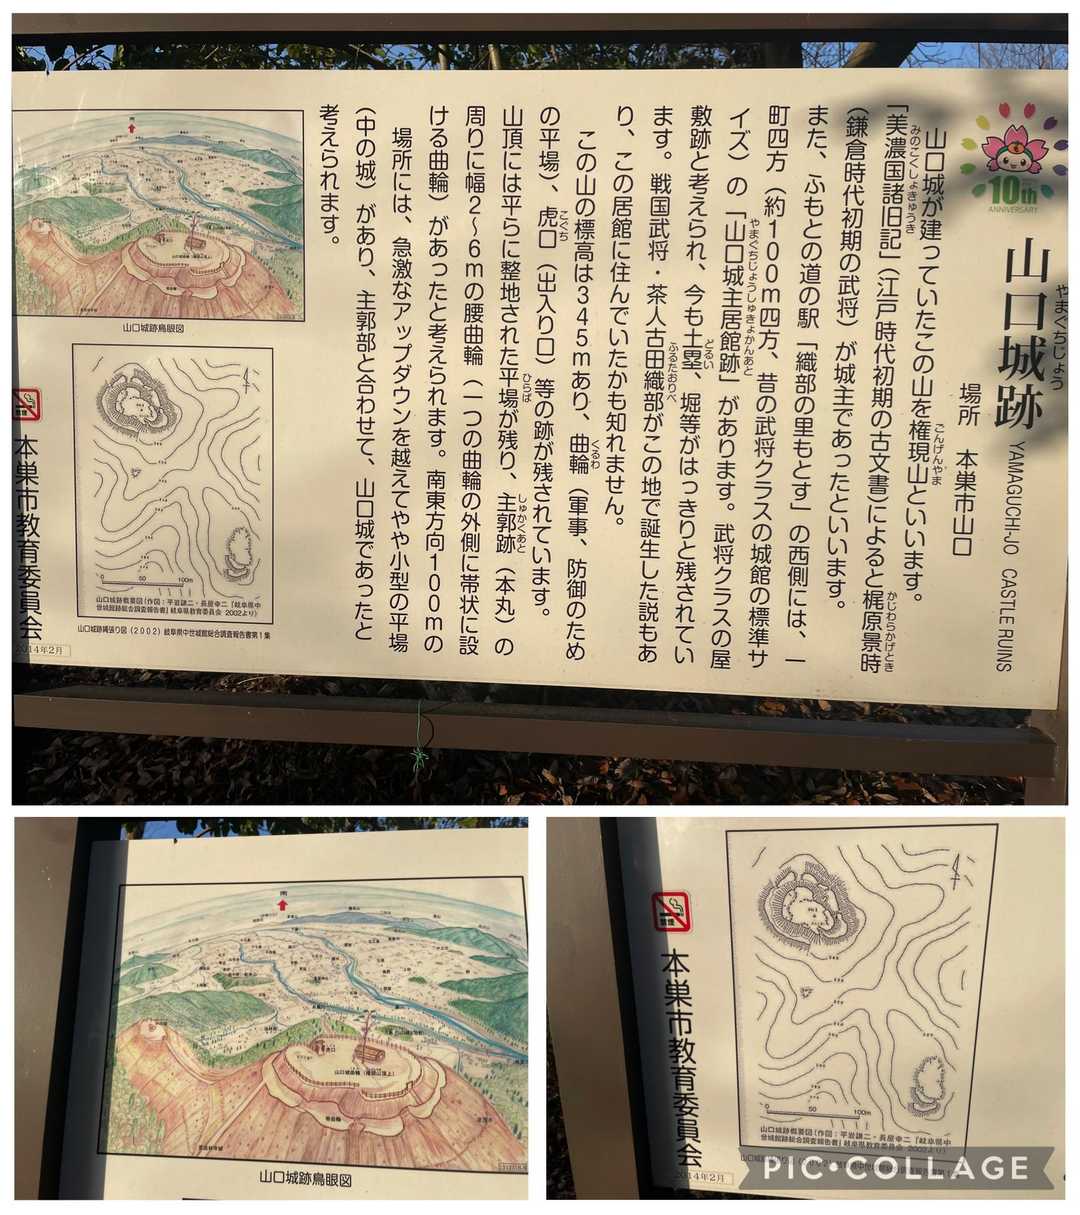 10th
ANNIVERSARY
やまぐちじょう
山口城跡 YAMAGUCHI-JO CASTLE RUINS
場所 本巣市山口
ごんげんやま
山口城が建っていたこの山を権現山といいます。
みのこくしょきゅうき かじわらかげとき
「美濃国諸旧記」(江戸時代初期の古文書)によると梶原景時
(鎌倉時代初期の武将)が城主であったといいます。
また、ふもとの道の駅「織部の里もとす」の西側には、一
町四方(約100m四方、昔の武将クラスの城館の標準サ
やまぐちじょうしゅきょかんあと
イズ)の「山口城主居館跡」があります。武将クラスの屋
どるい
敷跡と考えられ、今も土塁、堀等がはっきりと残されてい
ふるたおりべ
ます。戦国武将・茶人古田織部がこの地で誕生した説もあ
り、この居館に住んでいたかも知れません。
くるわ
この山の標高は345mあり、曲輪(軍事、防御のため
こぐち
の平場)、虎口(出入り口)等の跡が残されています。
ひらば しゅかくあと
山頂には平らに整地された平場が残り、主郭跡(本丸)の
周りに幅2~6mの腰曲輪(一つの曲輪の外側に帯状に設
ける曲輪)があったと考えられます。南東方向100mの
場所には、急激なアップダウンを越えてやや小型の平場
(中の城)があり、主郭部と合わせて、山口城であったと
考えられます。
南
山口城跡鳥眼図
0 50 100m
山口城跡概要図(作図:平岩謙二・長屋幸二「岐阜県中
世城館跡総合調査報告書」岐阜県教育委員会 2002より)
山口城跡縄張り図(2002)岐阜県中世城館総合調査報告書第1集
禁煙
本巣市教育委員会
2014年2月
南
虎口
山口城曲輪(権現山頂上)
帯曲輪
山口城跡鳥眼図
禁煙
本巣市教育委員会
2014年2月
0 50 100m
山口城跡概要図(作図:平岩謙二・長屋幸二「岐阜県中
世城館跡総合調査報告書」岐阜県教育委員会 2002より)
PIC•COLLAGE